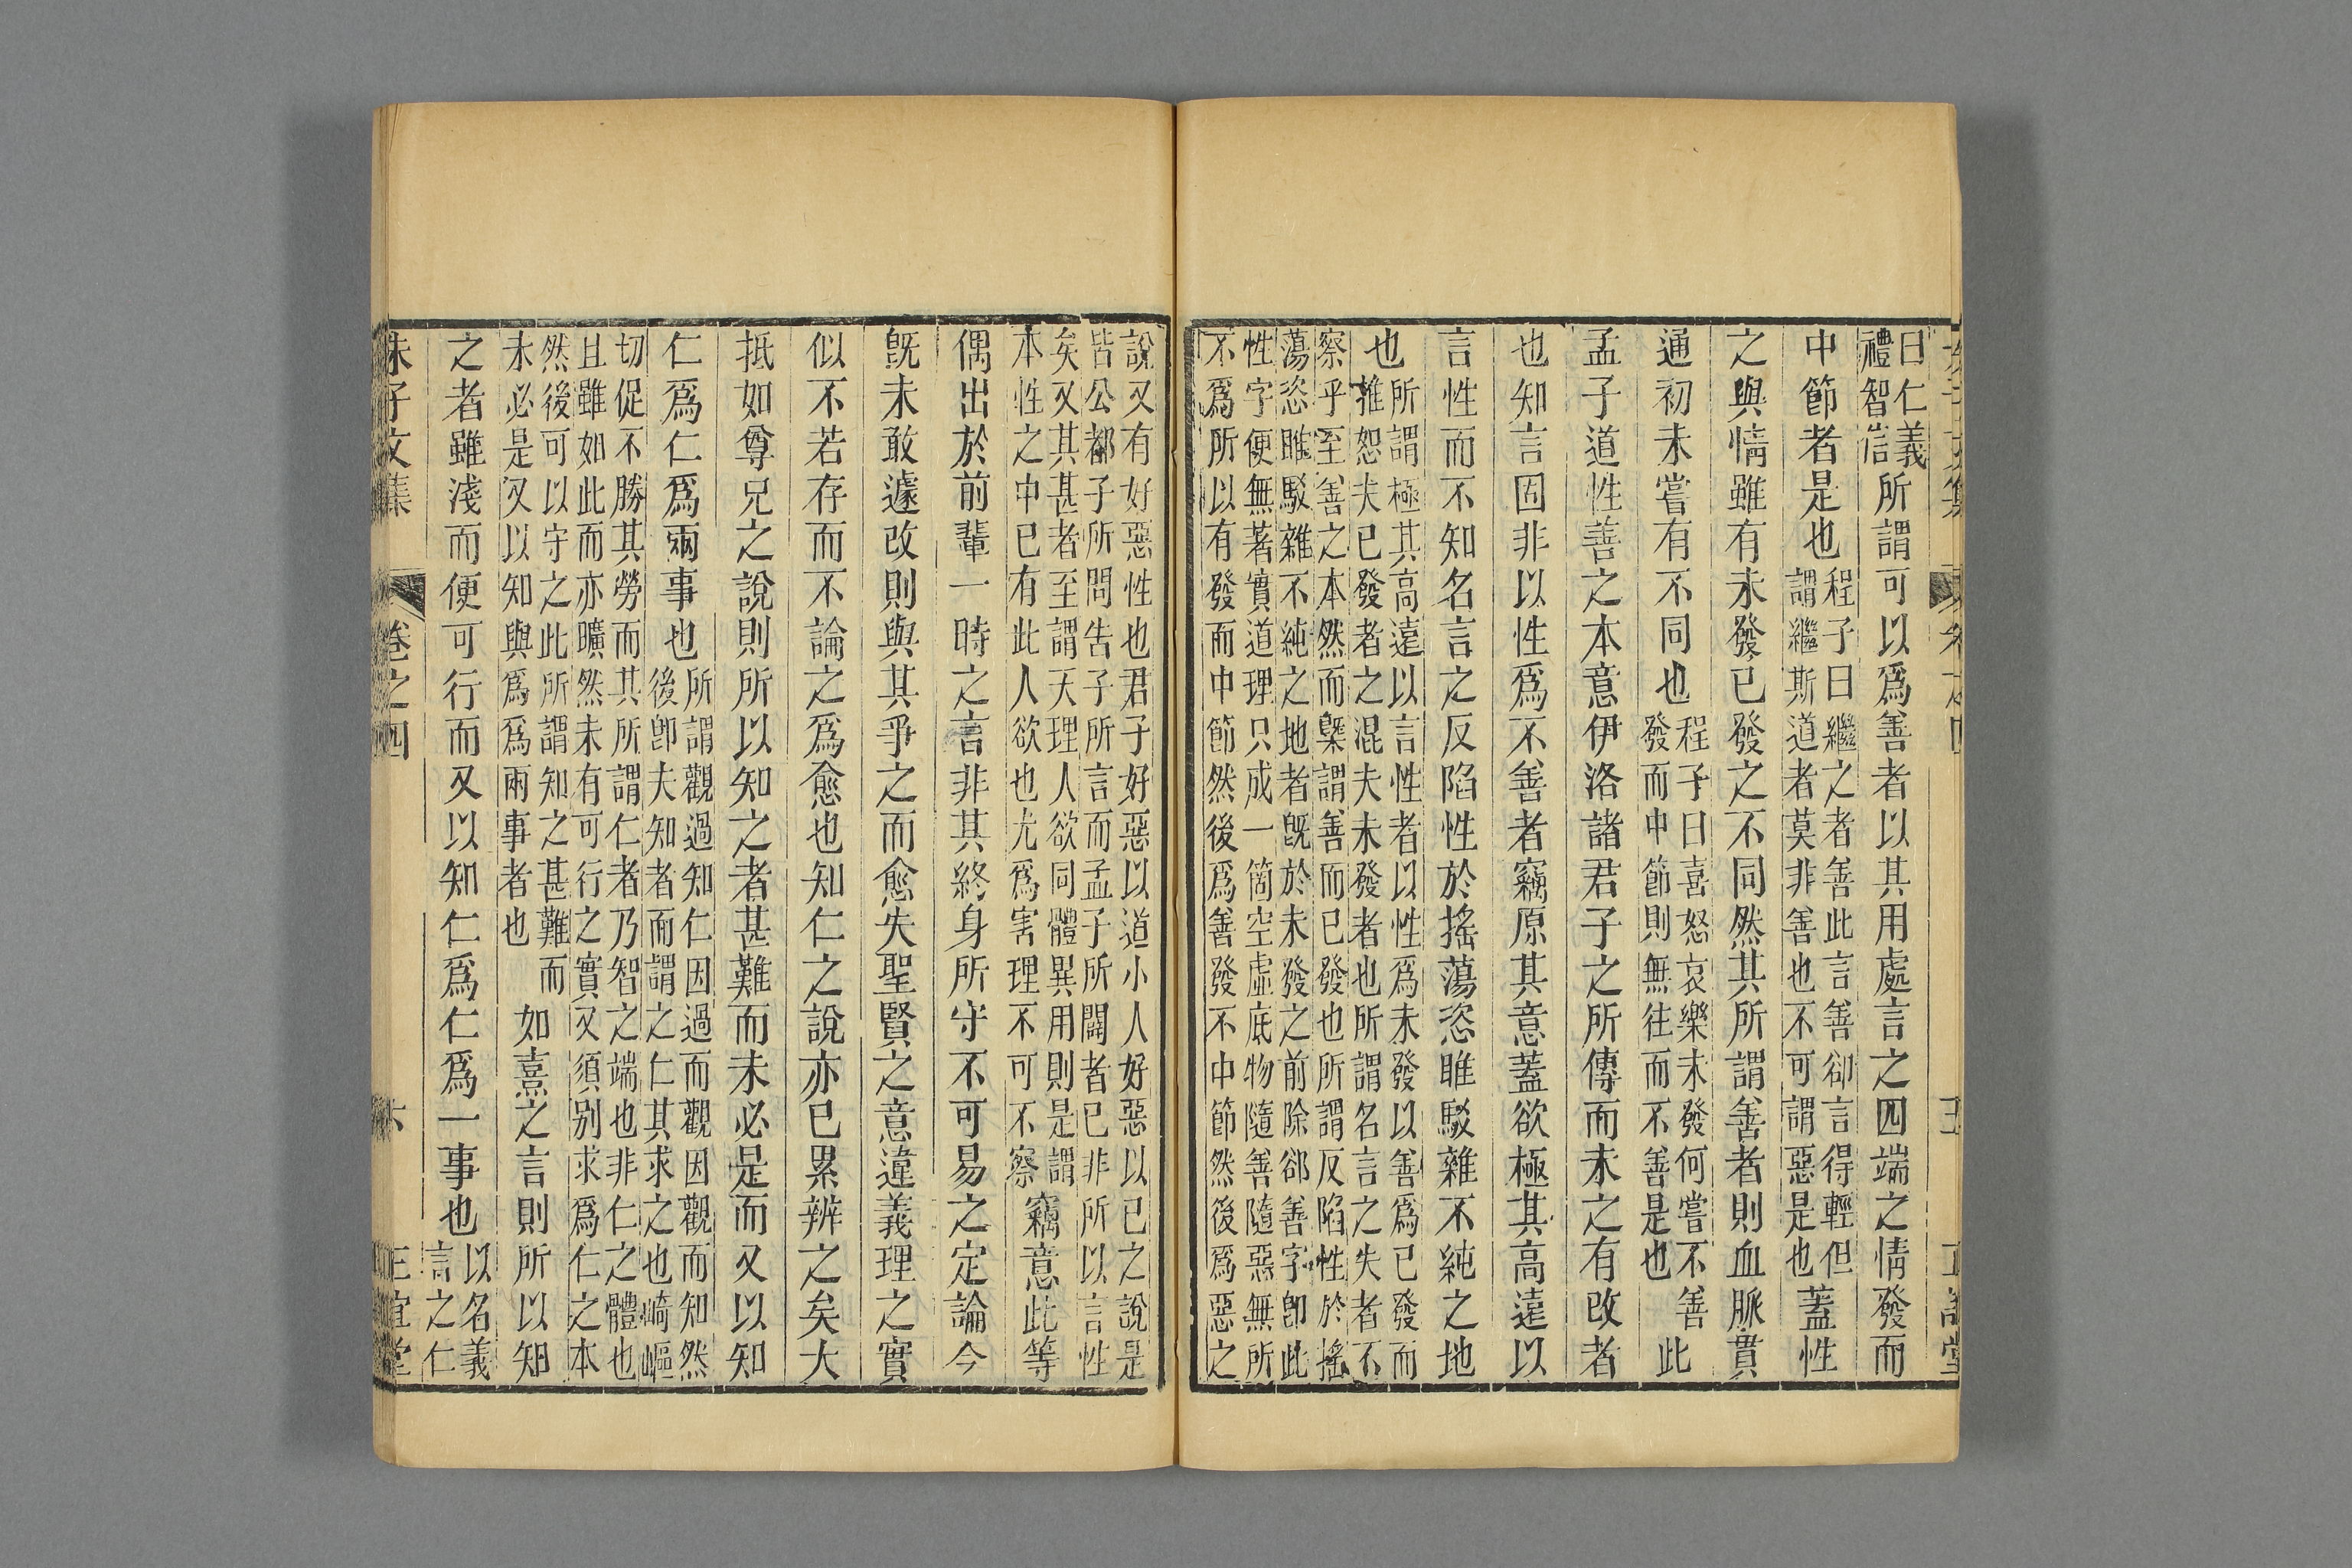 曰仁義禮智信所謂可以爲善者以其用處言之四端之情發而
中節者是也程子曰繼之者善此言善卻言得輕但謂繼斯道者莫非善也不可謂惡是也蓋性
之與情雖有未發已發之不同然其所謂善者則血脈貫
通初未嘗有不同也程子曰喜怒哀樂未發何嘗不善發而中節則無往而不善是也此
孟子道性善之本意伊洛諸君子之所傳而未之有改者
也知言固非以性爲不善者竊原其意蓋欲極其高遠以
言性而不知名言之反陷性於搖蕩恣睢駁雜不純之地
也所謂極其高遠以言性者以性爲未發以善爲已發而惟恕夫已發者之混夫未發者也所謂名言之失者不
察乎至善之本然而槩謂善而已發也所謂反陷性於搖蕩恣睢駁雜不純之地者旣於未發之前除卻善字卽此
性字便無著實道理只成一箇空虛底物隨善隨惡無所不爲所以有發而中節然後爲善發不中節然後爲惡之
說又有好惡性也君子好惡以道小人好惡以已之說是皆公都子所問告子所言而孟子所闢者已非所以言性
矣又其甚者至謂天理人欲同體異用則是謂本性之中已有此人欲也尤爲害理不可不察竊意此等
偶出於前輩一時之言非其終身所守不可易之定論今
旣未敢遽改則與其爭之而愈失聖賢之意違義理之實
似不若存而不論之爲愈也知仁之說亦已累辨之矣大
抵如尊兄之說則所以知之者甚難而未必是而又以知
仁爲仁爲兩事也所謂觀過知仁因過而觀因觀而知然後卽夫知者而謂之仁其求之也崎嶇
切促不勝其勞而其所謂仁者乃智之端也非仁之體也且雖如此而亦曠然未有可行之實又須別求爲仁之本
然後可以守之此所謂知之甚難而未必是又以知與爲爲兩事者也如熹之言則所以知
之者雖淺而便可行而又以知仁爲仁爲一事也以名義言之仁
朱子文集
卷之四
六
正誼堂